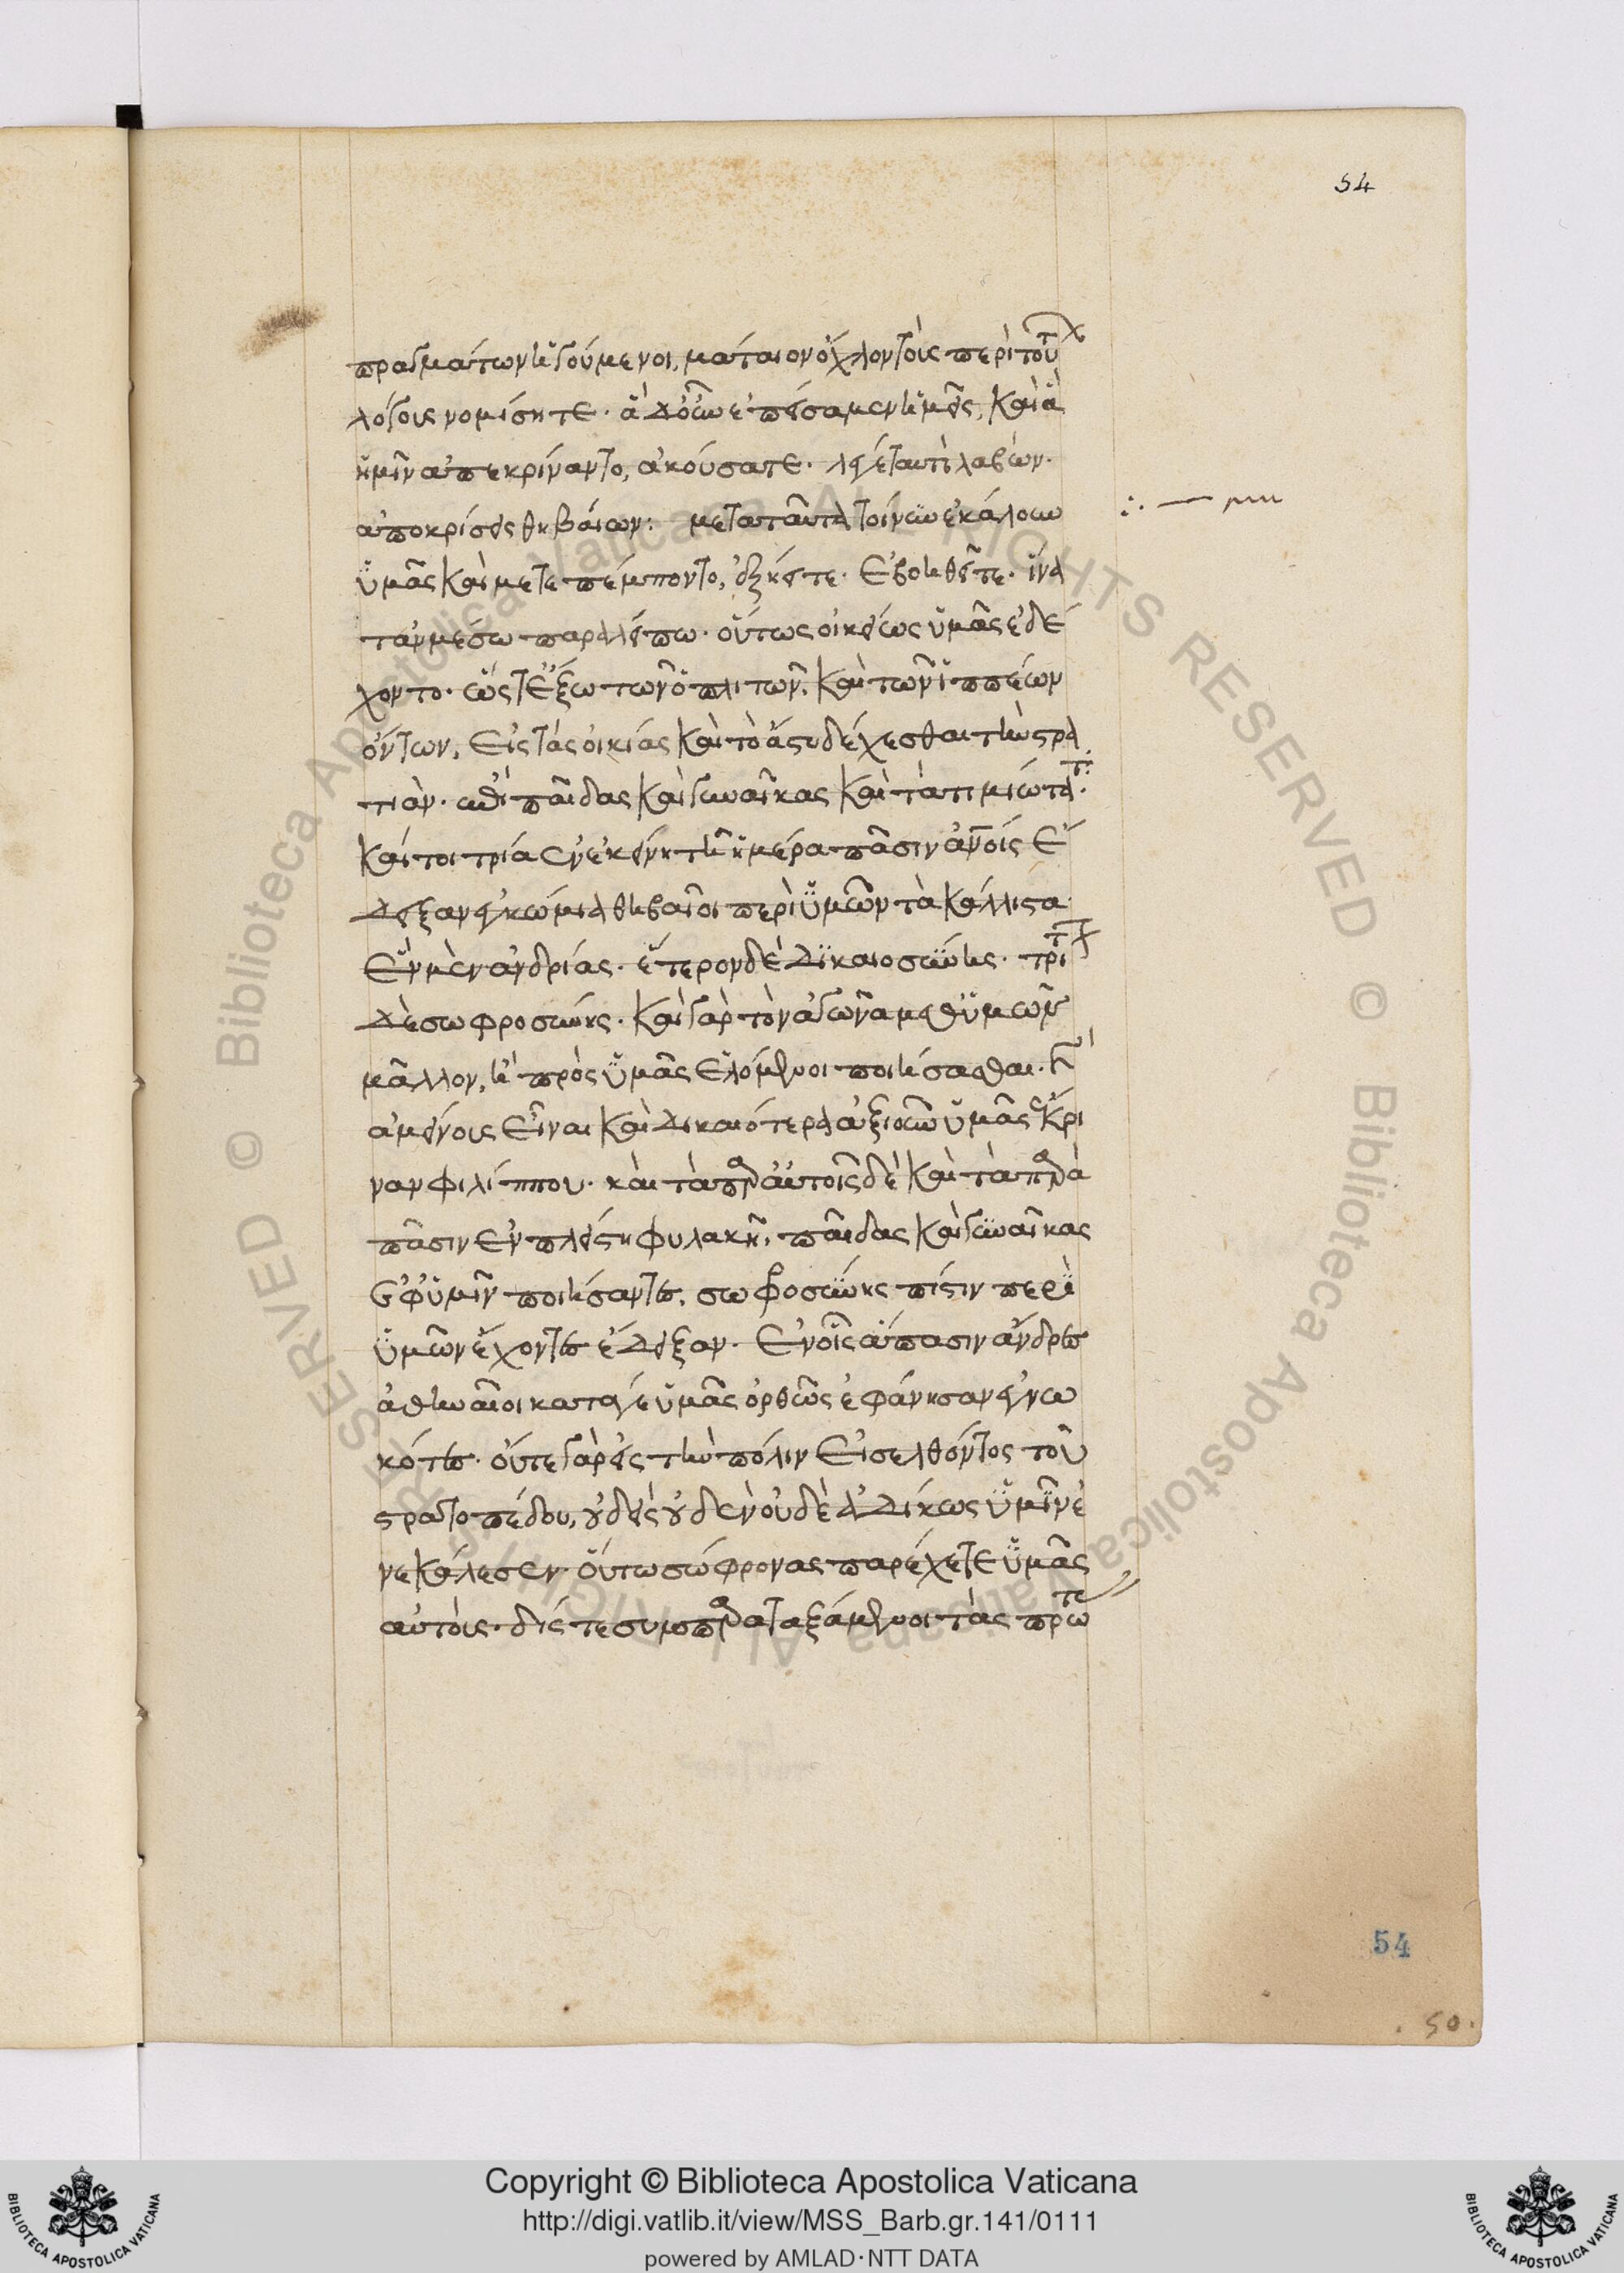 πραγμάτων ἡγούμενοι, μάταιον ὄχλον τοὺς περὶ τούτ
λόγους νομίσητε· ἃ δοὖν ἐπείσαμεν ἡμεῖς, καὶ ἃ
ἡμῖν ἀπεκρίναντο, ἀκούσατε· λέγε ταυτὶ λαβών·
ἀποκρίσεις θηβαίων: μετὰ ταῦτα τοίνυν ἐκάλουν
ὑμᾶς καὶ μετεπέμποντο, ἐξήειτε· ἐβοηθεῖτε· ἵνα
τἀν μέσω παραλείπω· οὕτως οἰκείως ὑμᾶς ἐδέ
χοντο· ὥστε ἔξω τῶν ὁπλιτῶν, καὶ τῶν ἱππέων
ὄντων, εἰς τὰς οἰκίας καὶ τὸ ἄστυ δέχεσθαι τὴν στρα
τιὰν· ἐπὶ παῖδας καὶ γυναῖκας καὶ τὰ τιμιώτατ·
καίτοι τρία ἐν ἐκείνη τῆ ἡμέρα πᾶσιν ἀνοις ἔ
δειξαν ἐγκώμια θηβαῖοι περὶ ὑμῶν τὰ κάλλιστα·
ἓν μὲν ἀνδρίας· ἕτερον δὲ δικαιοσύνης· τρίτ
δὲ σωφροσύνης· καὶ γὰρ τὸν ἀγῶνα μεθ ὑμῶν
μᾶλλον, ἢ πρὸς ὑμᾶς ἑλόμενοι ποιήσασθαι· κ
ἀμείνους εἶναι καὶ δικαιότερα ἀξιοῦν ὑμᾶς ἔκρι
ναν φιλίππου· καὶ τὰ παρ αὐτοῖς δὲ καὶ τὰ παρὰ
πᾶσιν ἐν πλείστη φυλακῆ, παῖδας καὶ γυναῖκας
ἐφ ὑμῖν ποιήσαντες, σωφροσύνης πίστιν περὶ
ὑμῶν ἔχοντες ἔδειξαν· ἐν οἷς ἅπασιν ἄνδρες
ἀθηναῖοι κατά γε ὑμᾶς ὀρθῶς ἐφάνησαν ἐγνω
κότες· οὔτε γὰρ εἰς τὴν πόλιν εἰσελθόντος τοῦ
στρατοπέδου, οὐδεὶς οὐδὲν οὐδὲ ἀδίκως ὑμῖν ἐ
νεκάλεσεν· οὕτω σώφρονας παρέχετε ὑμᾶς
αὐτοὺς· δίς τε συμπαραταξάμενοι τὰς πρώτ
54
54
50.
© Biblioteca Apostolica Vaticana ALL RIGHTS RESERVED © Biblioteca Apostolica Vaticana ALL RIGHTS RESERVED
Copyright © Biblioteca Apostolica Vaticana
http://digi.vatlib.it/view/MSS_Barb.gr.141/0111
powered by AMLAD·NTT DATA
BIBLIOTECA APOSTOLICA VATICANA
BIBLIOTECA APOSTOLICA VATICANA